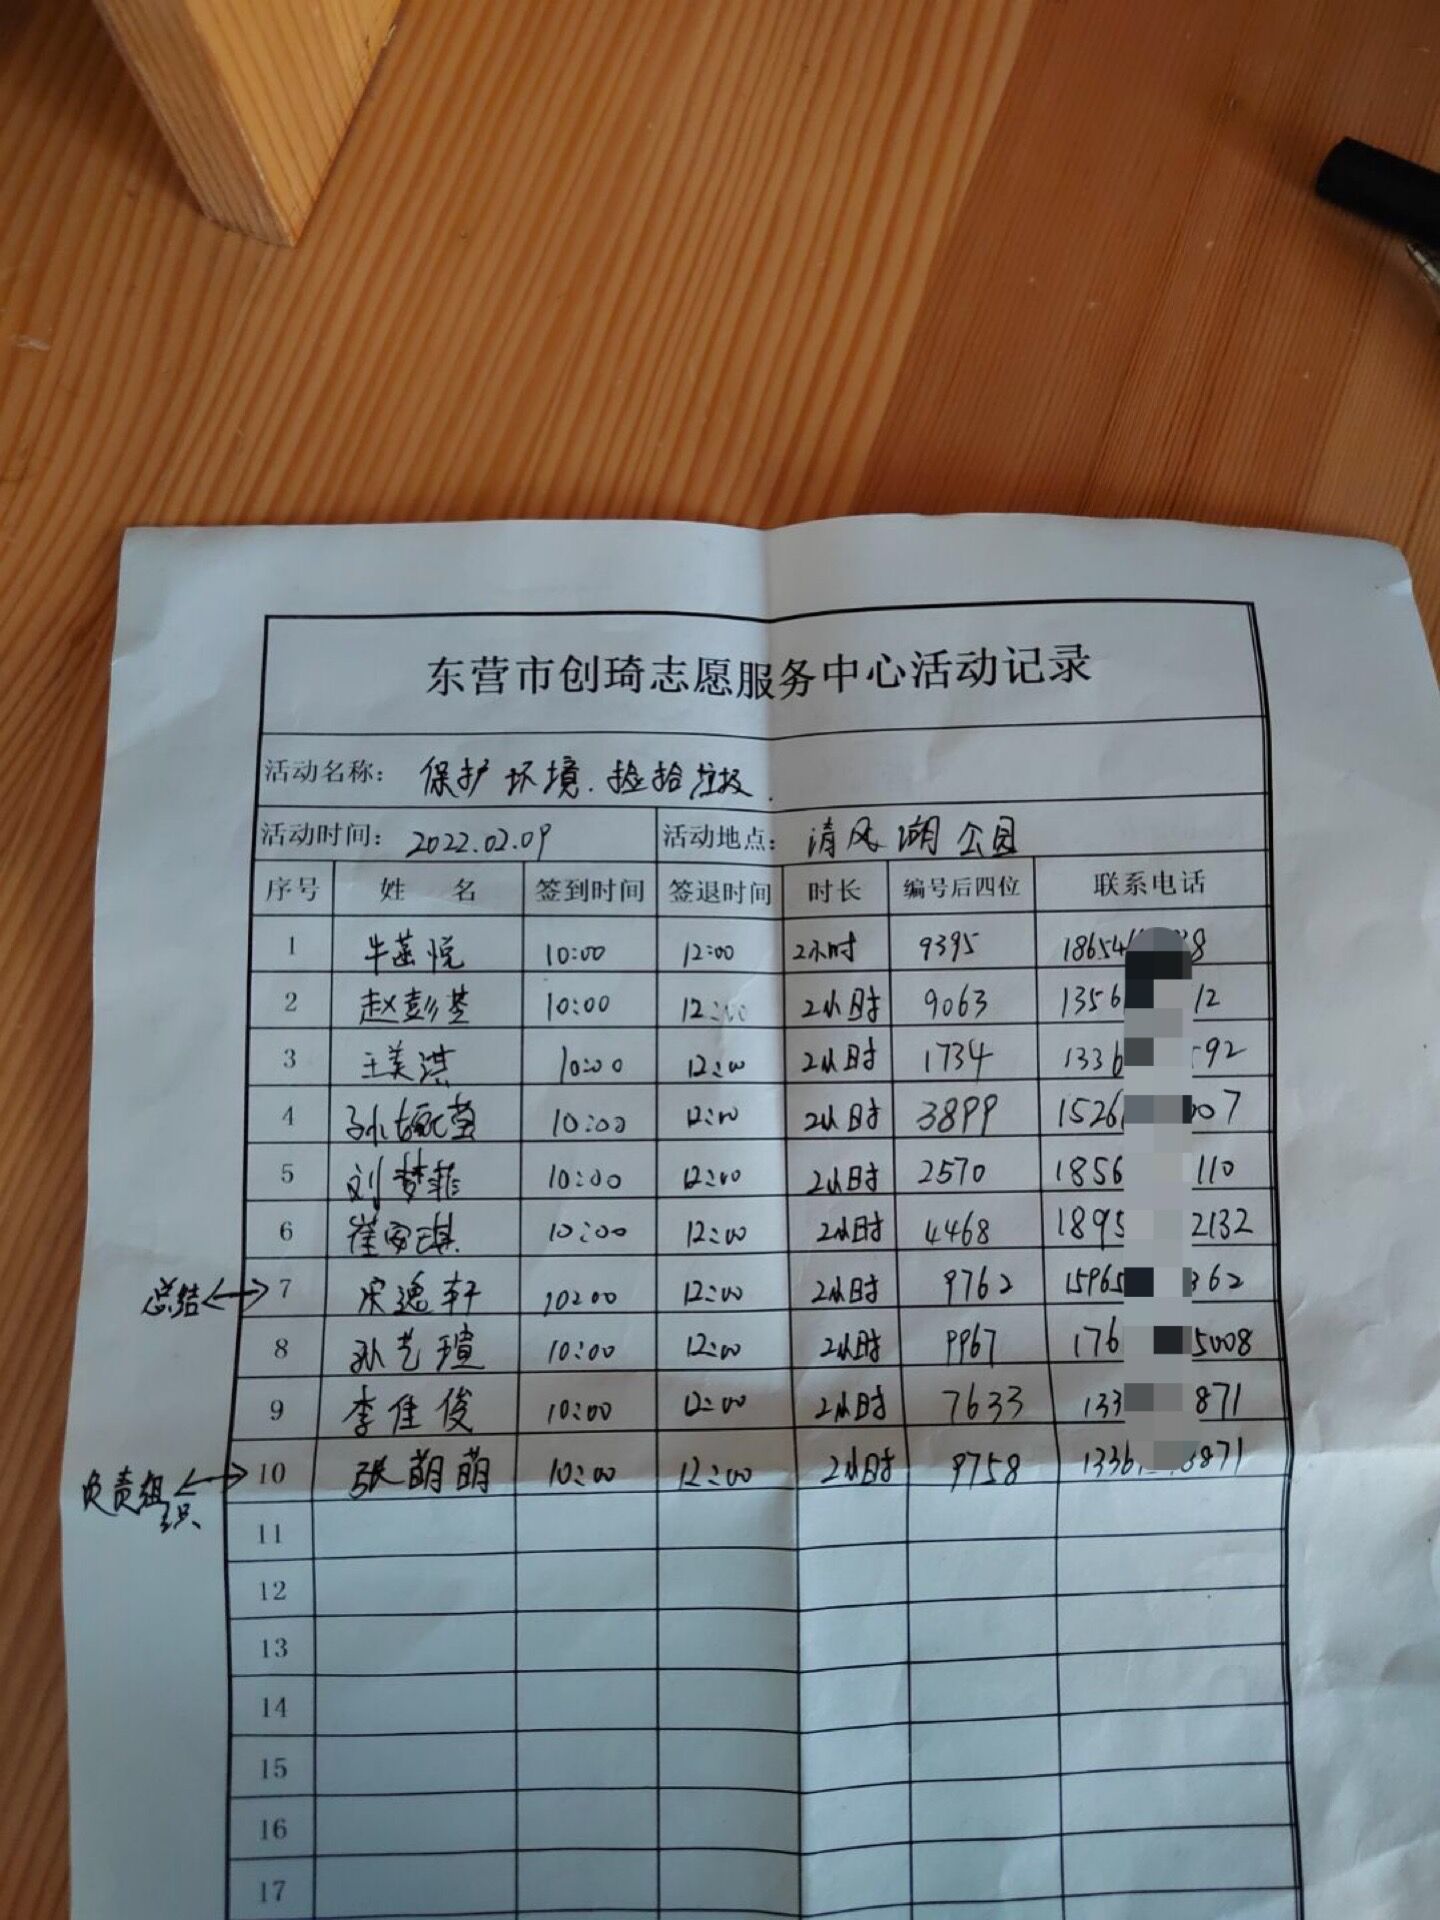 东营市创琦志愿服务中心活动记录
活动名称: 保护环境.捡拾垃圾.
活动时间: 2022.02.09 活动地点: 清风湖公园
序号 姓 名 签到时间 签退时间 时长 编号后四位 联系电话
1 牛菡悦 10:00 12:00 2小时 9395 18654 8
2 赵彭 10:00 12:00 2小时 9063 1356 12
3 王美淇 10:00 12:00 2小时 1734 1336 592
4 孙 莹 10:00 12:00 2小时 3899 1526 007
5 刘梦菲 10:00 12:00 2小时 2570 1856 110
6 崔 琪 10:00 12:00 2小时 4468 1895 2132
总结 7 宋逸轩 10:00 12:00 2小时 9762 15965 362
8 孙艺瑄 10:00 12:00 2小时 9967 176 5008
9 李佳俊 10:00 12:00 2小时 7633 133 871
负责组织 10 张萌萌 10:00 12:00 2小时 9758 1336 3871
11
12
13
14
15
16
17